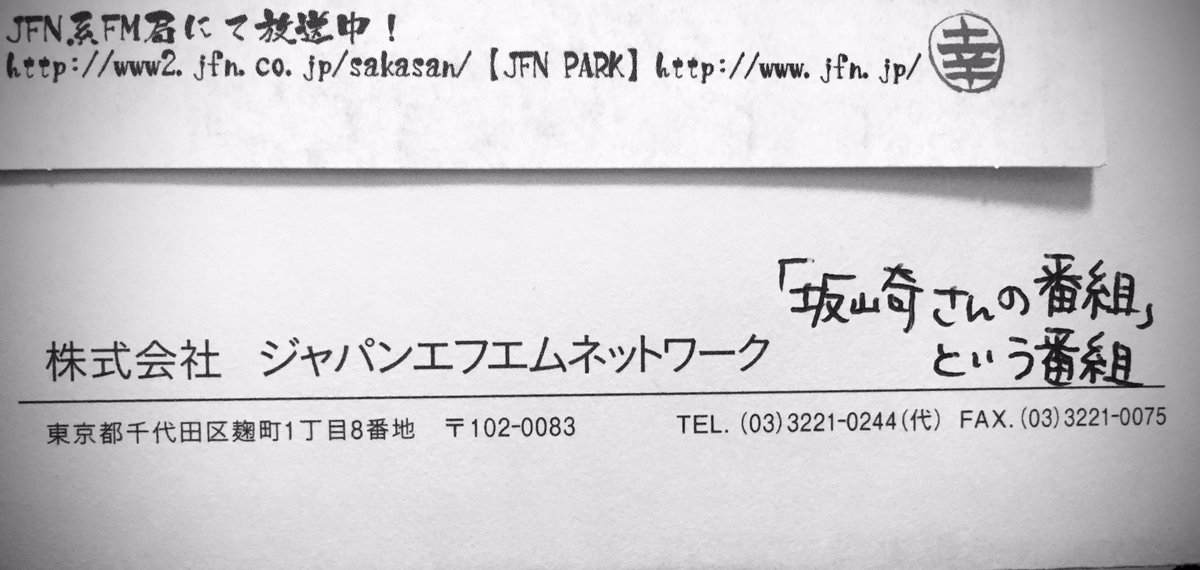 JFN系FM局にて放送中！
http://www2.jfn.co.jp/sakasan/【JFN PARK】http://www.jfn.jp/ 幸
「坂崎さんの番組」
という番組
株式会社 ジャパンエフエムネットワーク
東京都千代田区麹町1丁目8番地 〒102-0083 TEL. (03)3221-0244(代) FAX. (03)3221-0075